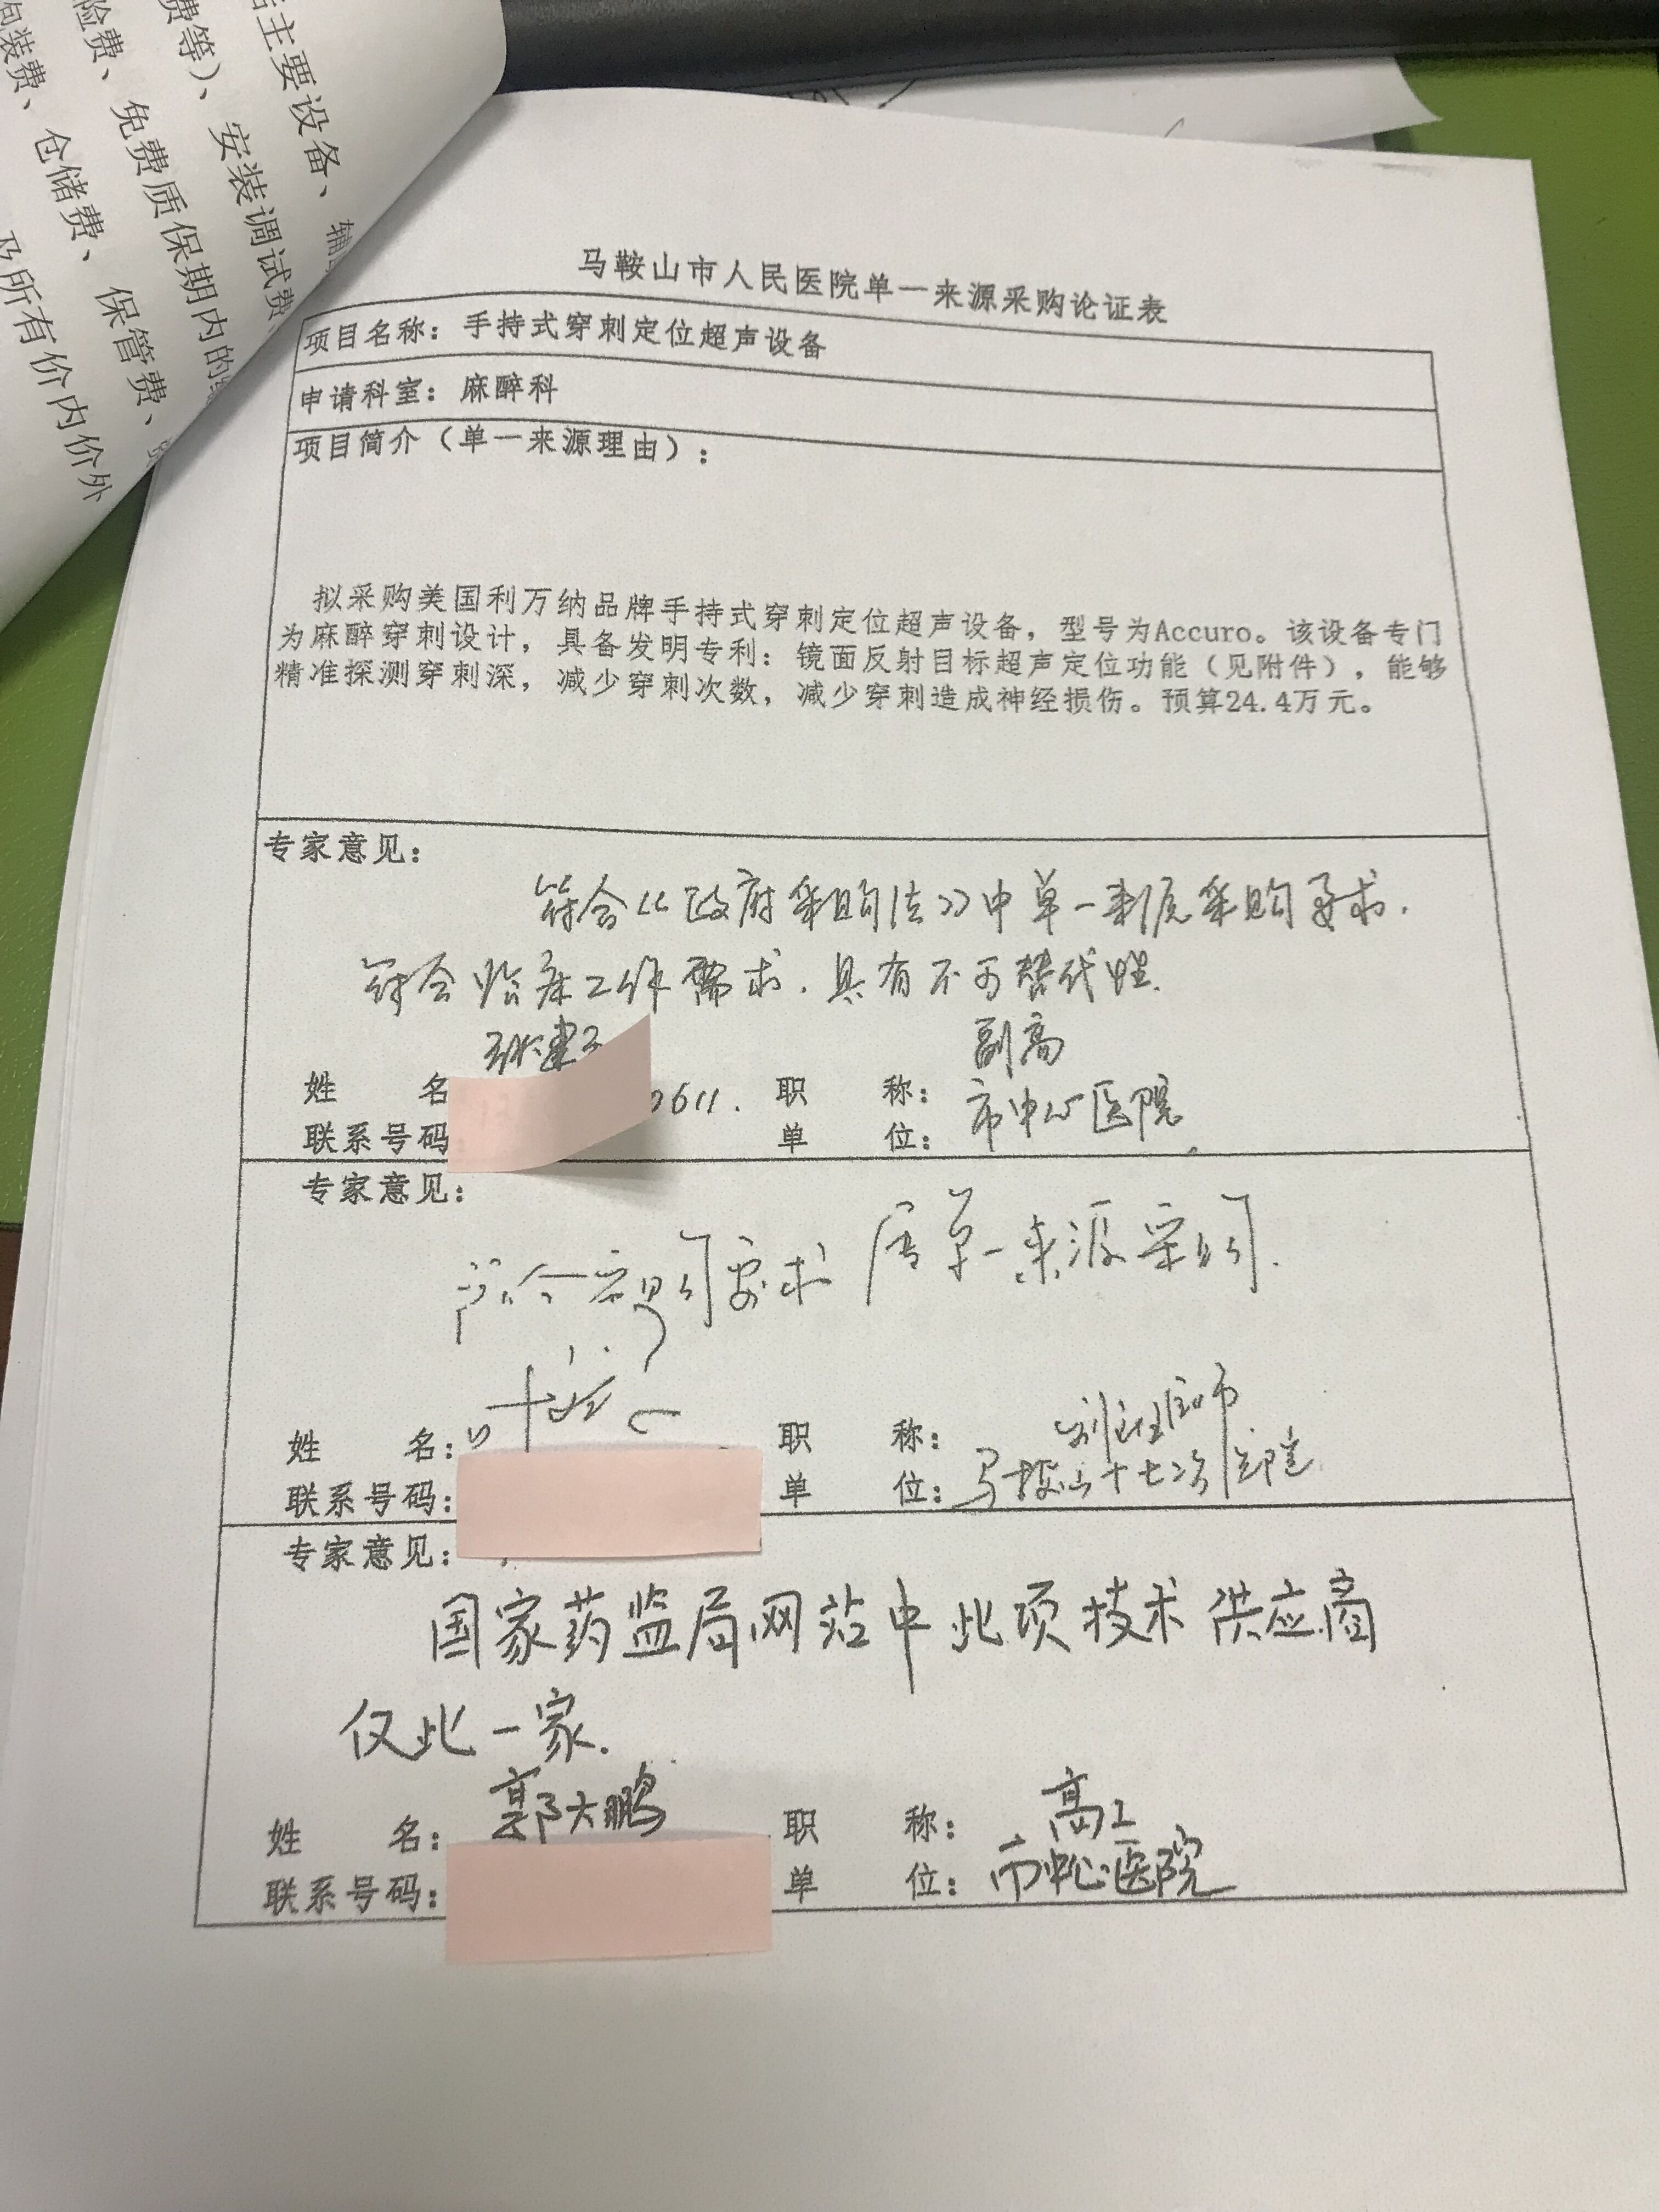 主要设备、辅
费等）、安装调试费
险费、免费质保期内的
包装费、仓储费、保管费、
及所有价内价外
马鞍山市人民医院单一来源采购论证表
项目名称：手持式穿刺定位超声设备
申请科室：麻醉科
项目简介（单一来源理由）：
拟采购美国利万纳品牌手持式穿刺定位超声设备，型号为Accuro。该设备专门
为麻醉穿刺设计，具备发明专利：镜面反射目标超声定位功能（见附件），能够
精准探测穿刺深，减少穿刺次数，减少穿刺造成神经损伤。预算24.4万元。
专家意见：
符合《政府采购法》中单一来源采购要求.
符合临床工作需求.具有不可替代性.
姓 名 职 称：副高
联系号码 0611. 单 位：市中心医院
专家意见：
符合采购要求 属单一来源采购.
姓 名： 职 称：副主任医师
联系号码： 单 位：马鞍山十七冶医院
专家意见：
国家药监局网站中此项技术供应商
仅此一家.
姓 名：郭大鹏 职 称：高工
联系号码： 单 位：市中心医院